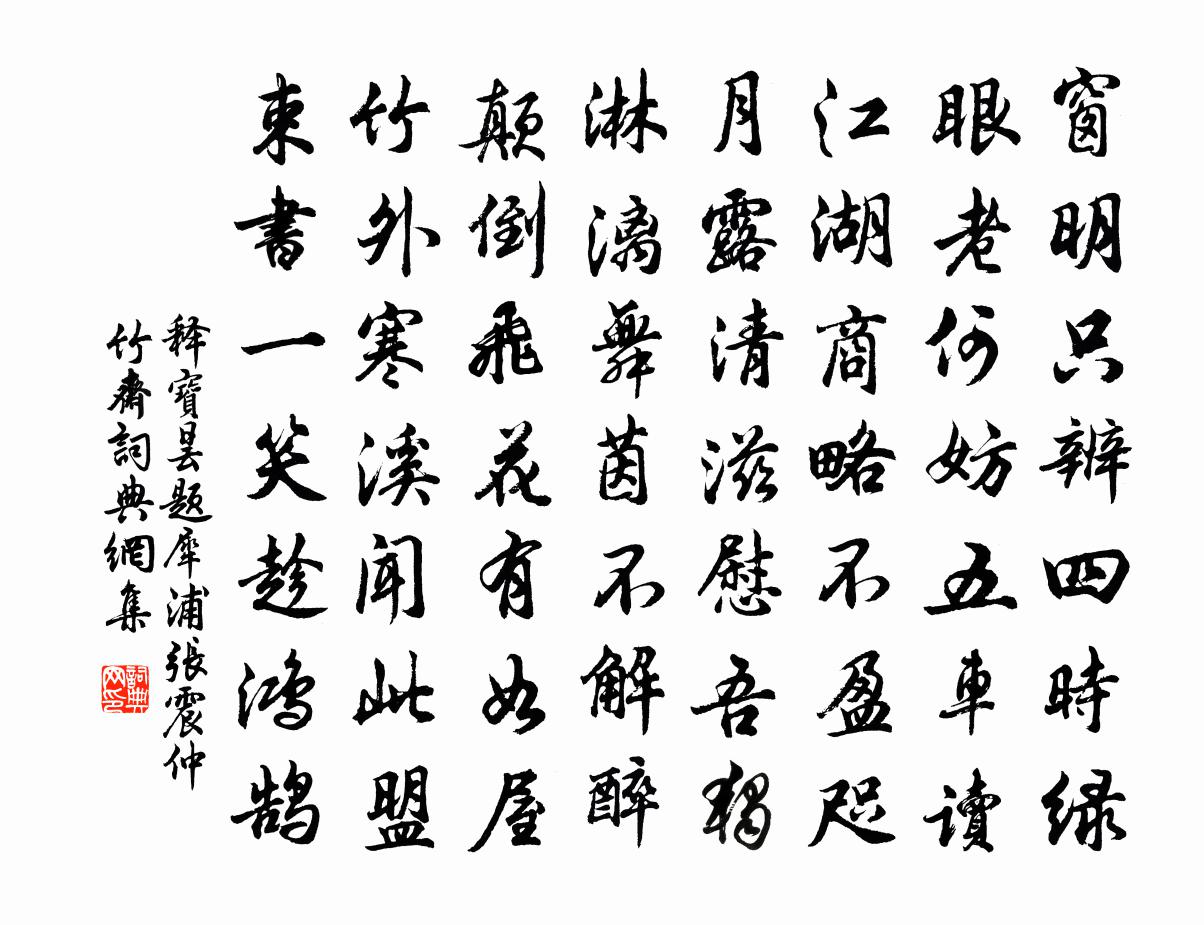 窗明只辨四時緑
眼老何妨五車读
江湖商略不盈咫
月露清滋慰吾獨
淋漓舞茵不解醉
颠倒飛花有如屋
竹外寒溪闻此盟
束書一笑趁鴻鹄
释寶昙题犀浦張震仲
竹齋詞典網集
詞典网印